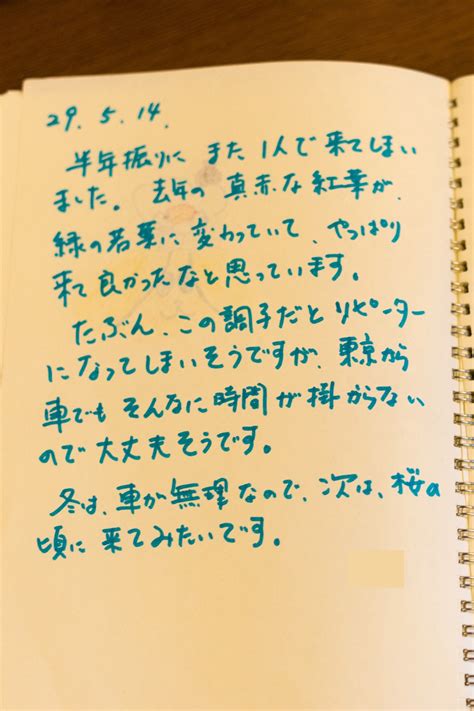 29. 5. 14.
半年振りに また 1人で 来てしまい
ました。 去年の 真赤な 紅葉が、
緑の若葉に 変わっていて、やっぱり
来て良かったなと思っています。
たぶん、この調子だと リピーター
になってしまいそうですが、東京から
車でも そんなに時間が掛からない
ので大丈夫そうです。
冬は、車が無理なので、次は、桜の
頃に 来てみたいです。